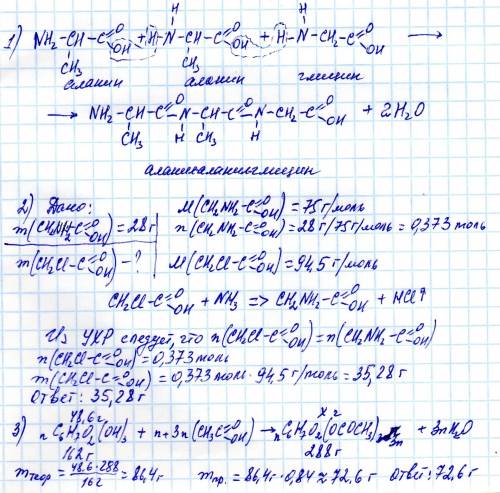 1) NH₂-CH-C=O OH + H-N-CH-C=O OH + H-N-CH₂-C=O OH →
CH₃ H CH₃ H
аланин аланин глицин
→ NH₂-CH-C=O-N-CH-C=O-N-CH₂-C=O OH + 2H₂O
CH₃ H CH₃ H
аланилаланилглицин
2) Дано: M(CH₂NH₂-C=O OH) = 75 г/моль
m(CH₂NH₂-C=O OH) = 28 г n(CH₂NH₂-C=O OH) = 28 г/75 г/моль = 0,373 моль
m(CH₂Cl-C=O OH) - ? M(CH₂Cl-C=O OH) = 94,5 г/моль
CH₂Cl-C=O OH + NH₃ => CH₂NH₂-C=O OH + HCl↑
Из УХР следует, что n(CH₂Cl-C=O OH) = n(CH₂NH₂-C=O OH)
n(CH₂Cl-C=O OH) = 0,373 моль
m(CH₂Cl-C=O OH) = 0,373 моль · 94,5 г/моль = 35,28 г
Ответ: 35,28 г
48,6 г x г
3) n C₆H₇O₂(OH)₃ + n+3n(CH₃C=O OH) → n C₆H₇O₂(OCOCH₃)₃ + 3nH₂O
162 г 288 г
m теор = 48.6·288/162 = 86,4 г m пр. = 86,4 г · 0,84 ≈ 72,6 г Ответ: 72,6 г